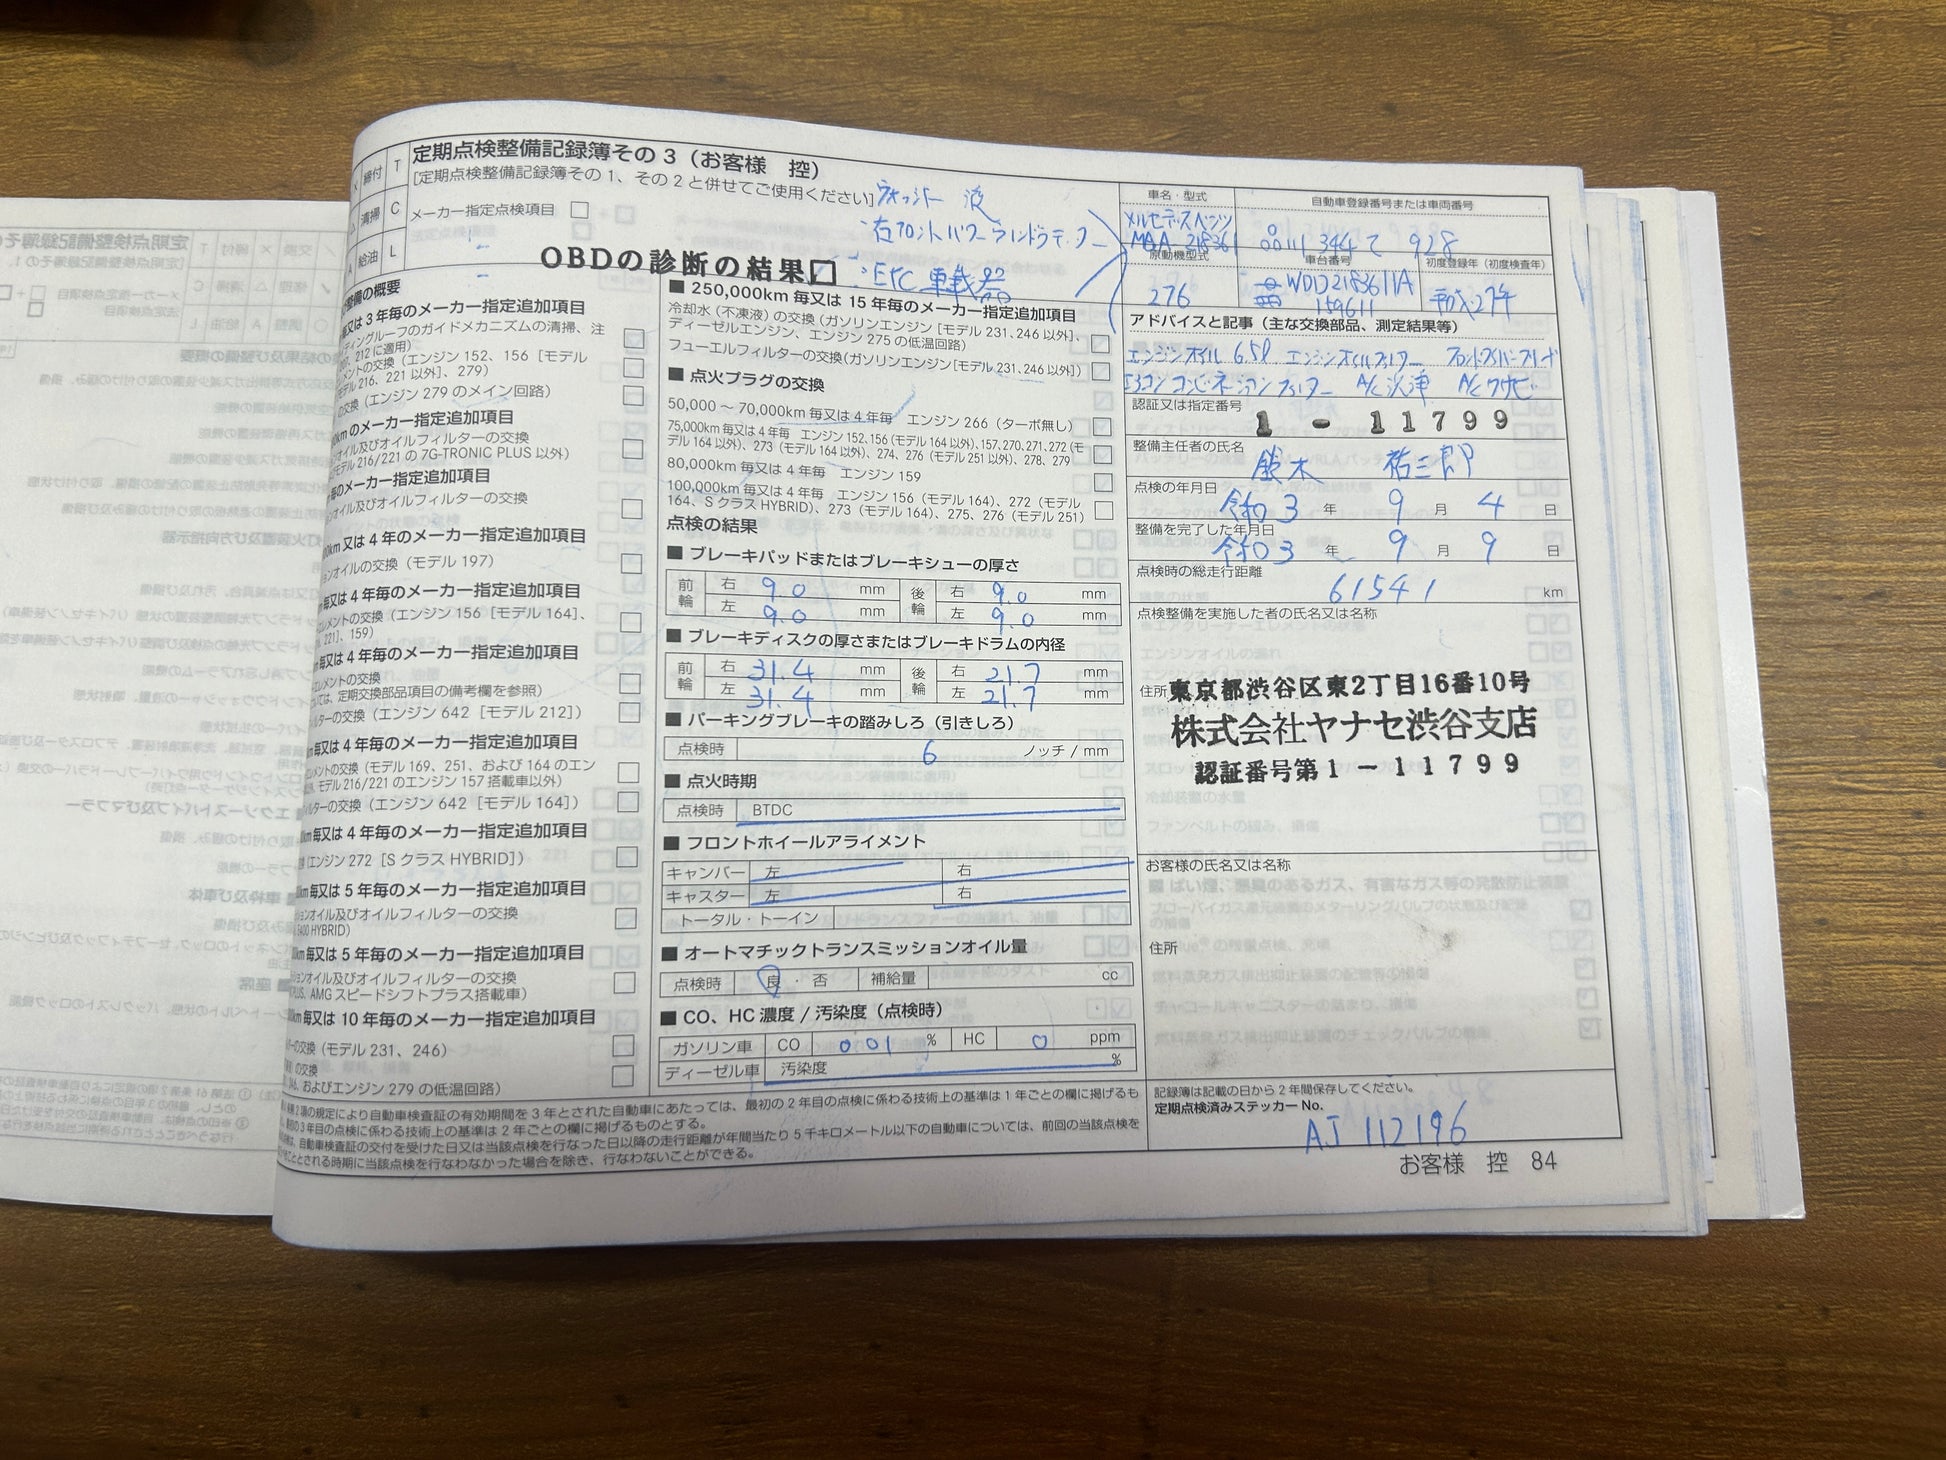 定期点検整備記録簿その3（お客様 控）
[定期点検整備記録簿その1、その2と併せてご使用ください]
締付 T
清掃 C
給油 L
メーカー指定点検項目 □
ウォッシャー 液
右フロントパワーウィンドウ
ETC 車載器
OBDの診断の結果□
整備の概要
又は3年毎のメーカー指定追加項目
ディングルーフのガイドメカニズムの清掃、注
212に適用)
ントの交換（エンジン 152、156［モデル
モデル 216、221 以外]、279）
の交換（エンジン 279 のメイン回路）
kmのメーカー指定追加項目
オイル及びオイルフィルターの交換
モデル 216/221 の 7G-TRONIC PLUS 以外)
毎のメーカー指定追加項目
オイル及びオイルフィルターの交換
km又は4年毎のメーカー指定追加項目
オイルの交換（モデル 197）
毎又は4年毎のメーカー指定追加項目
エレメントの交換（エンジン 156［モデル 164］、
221]、159)
毎又は4年毎のメーカー指定追加項目
エレメントの交換
ては、定期交換部品項目の備考欄を参照)
ルターの交換（エンジン 642［モデル 212］）
毎又は4年毎のメーカー指定追加項目
メントの交換（モデル 169、251、および 164 のエン
モデル 216/221 のエンジン 157 搭載車以外)
ルターの交換（エンジン 642［モデル 164］）
km毎又は4年毎のメーカー指定追加項目
（エンジン 272［S クラス HYBRID］）
毎又は5年毎のメーカー指定追加項目
ョンオイル及びオイルフィルターの交換
E400 HYBRID)
km毎又は5年毎のメーカー指定追加項目
ョンオイル及びオイルフィルターの交換
PLUS、AMG スピードシフトプラス搭載車)
km毎又は10年毎のメーカー指定追加項目
の交換（モデル 231、246）
の交換
246、およびエンジン 279 の低温回路)
■ 250,000km 毎又は 15 年毎のメーカー指定追加項目
冷却水（不凍液）の交換（ガソリンエンジン［モデル 231、246 以外］、
ディーゼルエンジン、エンジン 275 の低温回路）
フューエルフィルターの交換(ガソリンエンジン［モデル 231、246 以外］)
■ 点火プラグの交換
50,000 ～ 70,000km 毎又は 4 年毎 エンジン 266（ターボ無し）
75,000km 毎又は 4 年毎 エンジン 152、156（モデル 164 以外）、157、270、271、272（モ
デル 164 以外)、273（モデル 164 以外）、274、276（モデル 251 以外）、278、279
80,000km 毎又は 4 年毎 エンジン 159
100,000km 毎又は 4 年毎 エンジン 156（モデル 164）、272（モデル
164、S クラス HYBRID）、273（モデル 164）、275、276（モデル 251）
点検の結果
■ ブレーキパッドまたはブレーキシューの厚さ
前輪 右 9.0 mm 後輪 右 9.0 mm
左 9.0 mm 左 9.0 mm
■ ブレーキディスクの厚さまたはブレーキドラムの内径
前輪 右 31.4 mm 後輪 右 21.7 mm
左 31.4 mm 左 21.7 mm
■ パーキングブレーキの踏みしろ（引きしろ）
点検時 6 ノッチ / mm
■ 点火時期
点検時 BTDC
■ フロントホイールアライメント
キャンバー 左 右
キャスター 左 右
トータル・トーイン
■ オートマチックトランスミッションオイル量
点検時 良 ・ 否 補給量 cc
■ CO、HC 濃度 / 汚染度（点検時）
ガソリン車 CO 0.01 % HC 0 ppm
ディーゼル車 汚染度 %
2項の規定により自動車検査証の有効期間を 3 年とされた自動車にあたっては、最初の 2 年目の点検に係わる技術上の基準は 1 年ごとの欄に掲げるも
の3年目の点検に係わる技術上の基準は 2 年ごとの欄に掲げるものとする。
は、自動車検査証の交付を受けた日又は当該点検を行なった日以降の走行距離が年間当たり 5 千キロメートル以下の自動車については、前回の当該点検を
こととされる時期に当該点検を行なわなかった場合を除き、行なわないことができる。
車名・型式
メルセデスベンツ
MBA-218361
自動車登録番号または車両番号
344 て 928
原動機型式
276
車台番号
WDD2183611A
159611
初度登録年（初度検査年）
平成27年
アドバイスと記事（主な交換部品、測定結果等）
エンジンオイル 6.5l エンジンオイルフィルター フロントワイパーブレード
エアコンコンビネーションフィルター A/C洗浄 A/Cワサビ
認証又は指定番号
1 - 11799
整備主任者の氏名
鈴木 祐三郎
点検の年月日
令和3 年 9 月 4 日
整備を完了した年月日
令和3 年 9 月 9 日
点検時の総走行距離
61541 km
点検整備を実施した者の氏名又は名称
住所 東京都渋谷区東2丁目16番10号
株式会社ヤナセ渋谷支店
認証番号第1-11799
お客様の氏名又は名称
住所
記録簿は記載の日から 2 年間保存してください。
定期点検済みステッカー No.
AJ 112196
お客様 控 84